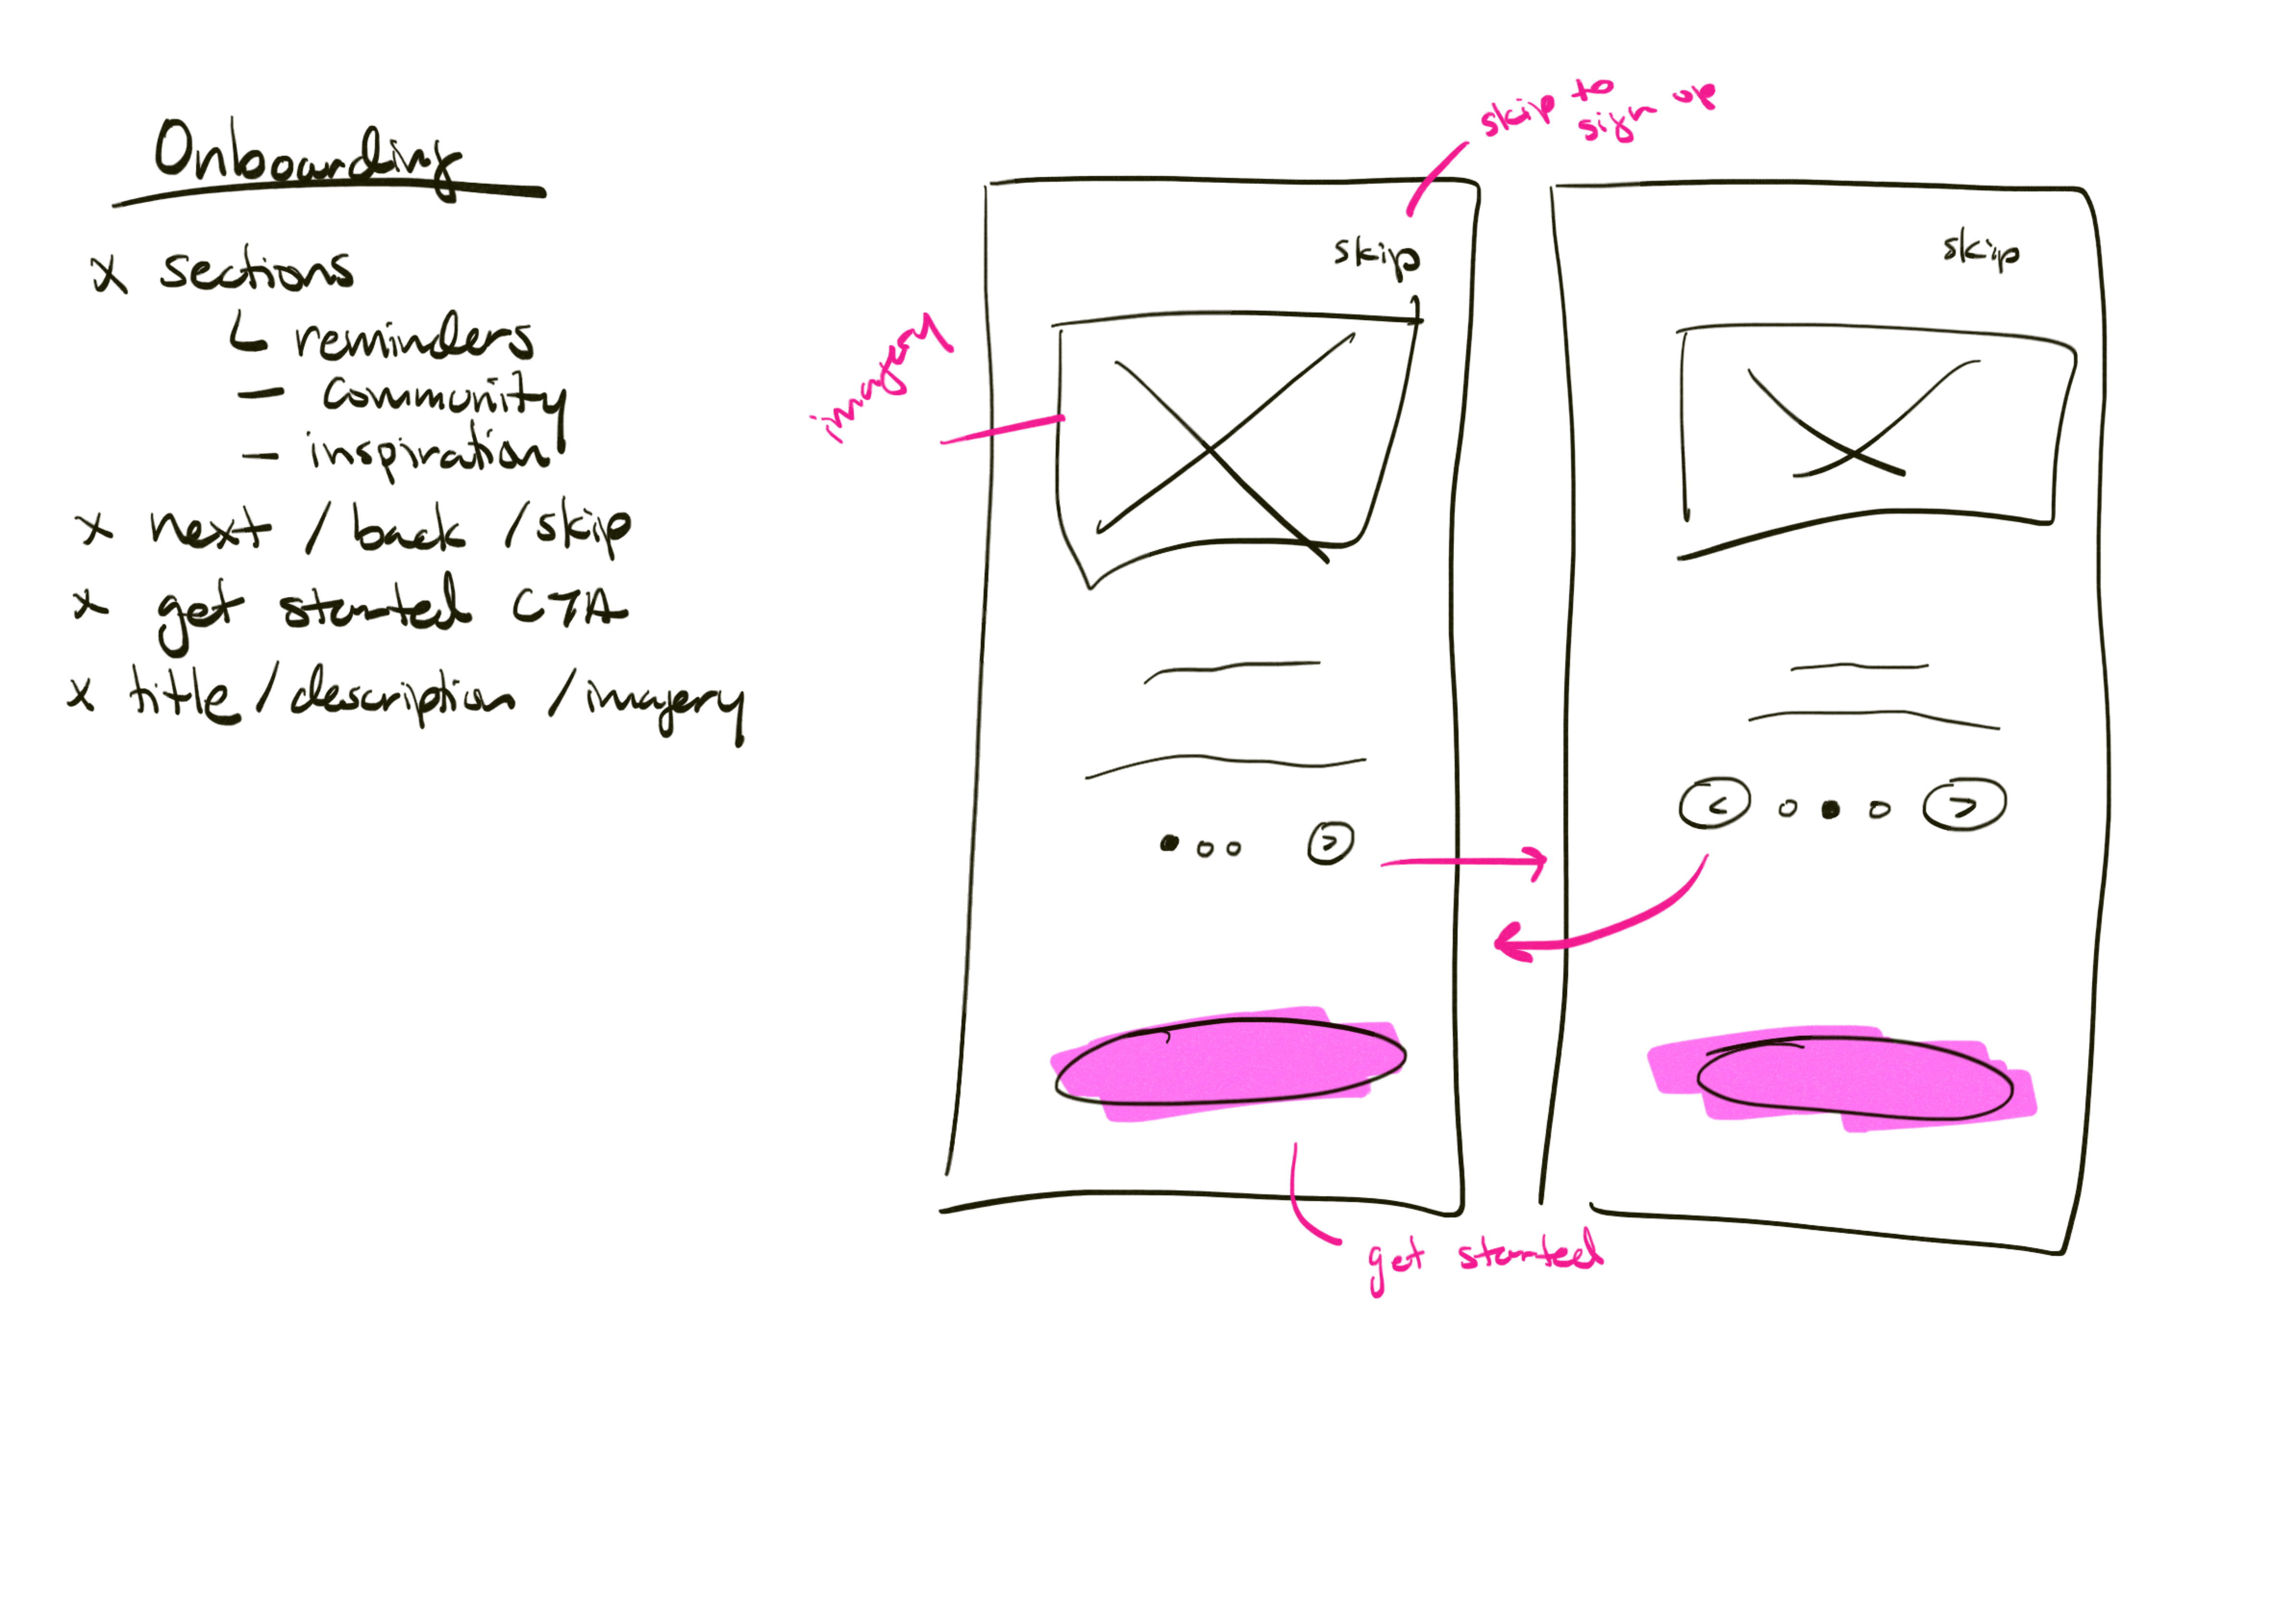 Onboarding
x sections
reminders
- community
- inspiration
x next / back / skip
x get started CTA
x title / description / imagery
skip to
sign up
skip
imagery
get started
skip